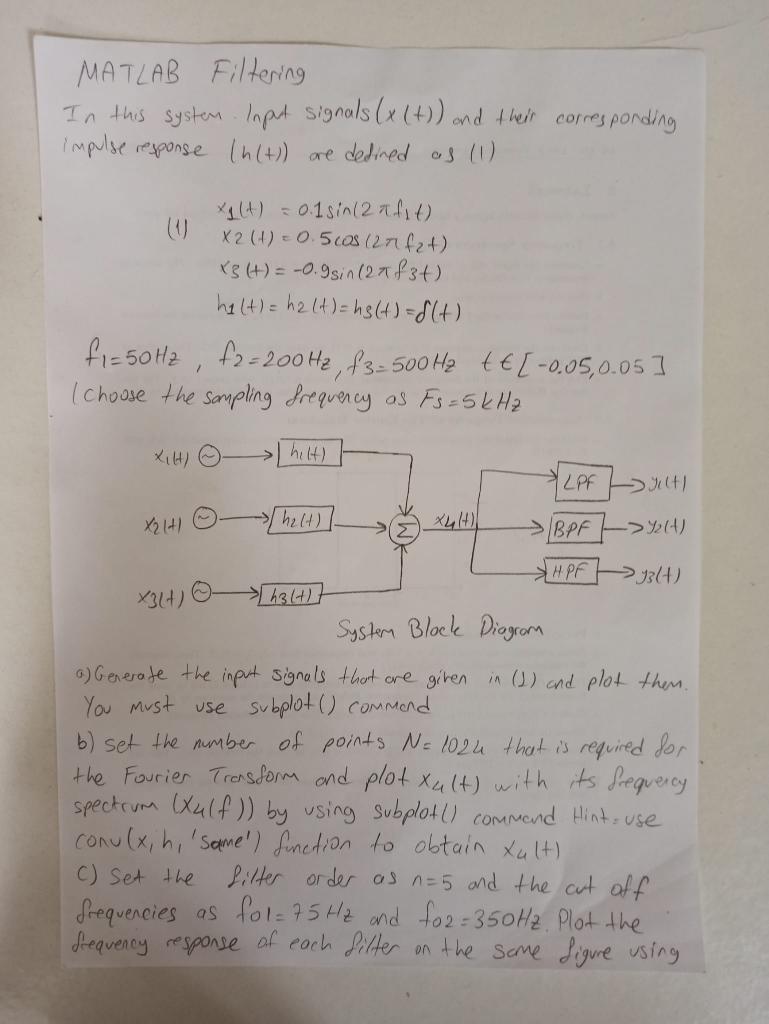 MATLAB Filtering
In this system. Input signals (x(t)) and their corresponding
impulse response (h(t)) are defined as (1)
x1(t) = 0.1sin(2πf1t)
(1) x2(t) = 0.5cos(2πf2t)
x3(t) = -0.9sin(2πf3t)
h1(t) = h2(t) = h3(t) = δ(t)
f1=50Hz , f2=200Hz, f3=500Hz t∈[-0.05,0.05]
(choose the sampling frequency as Fs=5kHz
x1(t) h1(t)
LPF y1(t)
x2(t) h2(t) Σ x4(t) BPF y2(t)
HPF y3(t)
x3(t) h3(t)
System Block Diagram
a) Generate the input signals that are given in (1) and plot them.
You must use subplot() command
b) set the number of points N=1024 that is required for
the Fourier Transform and plot x4(t) with its frequency
spectrum (X4(f)) by using subplot() command Hint: use
conv(x, h, 'same') function to obtain x4(t)
C) Set the filter order as n=5 and the cut off
frequencies as fo1=75Hz and fo2=350Hz. Plot the
frequency response of each filter on the same figure using